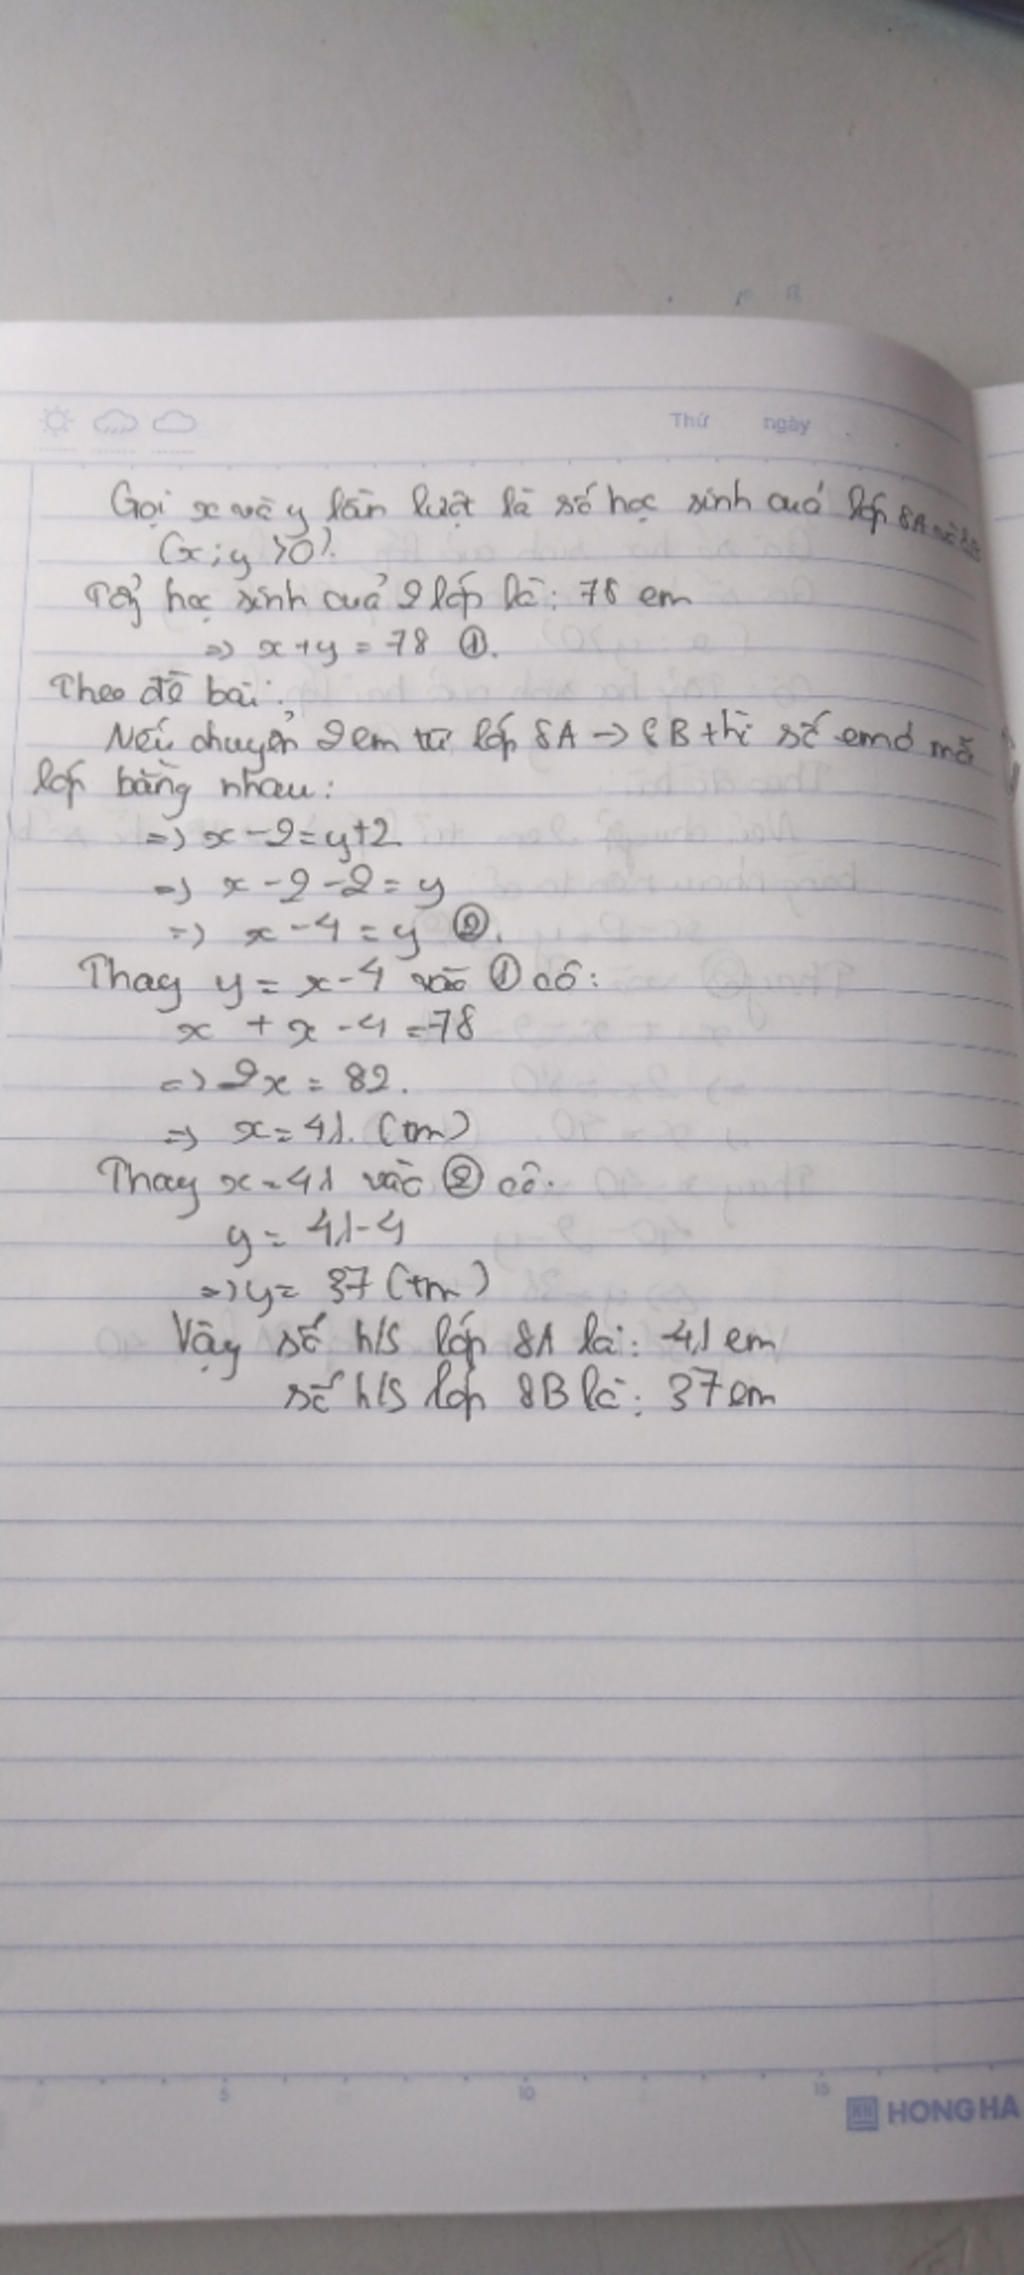 Thứ ngày
Gọi x và y lần lượt là số học sinh cuả lớp 8A và 8B
(x; y >0).
Tổng học sinh cuả 2 lớp là: 78 em
=> x+y = 78 ①.
Theo đề bài:
Nếu chuyển 2 em từ lớp 8A -> 8B thì số em ở mỗi
lớp bằng nhau:
=> x-2=y+2
=> x-2-2=y
=> x-4=y ②.
Thay y = x-4 vào ① có:
x + x -4 =78
=> 2x = 82.
=> x=41. (tm)
Thay x=41 vào ② có.
y = 41-4
=> y= 37 (tm)
Vậy số h/s lớp 8A là: 41 em
số h/s lớp 8B là: 37 em
5 10 15
HH HONG HA